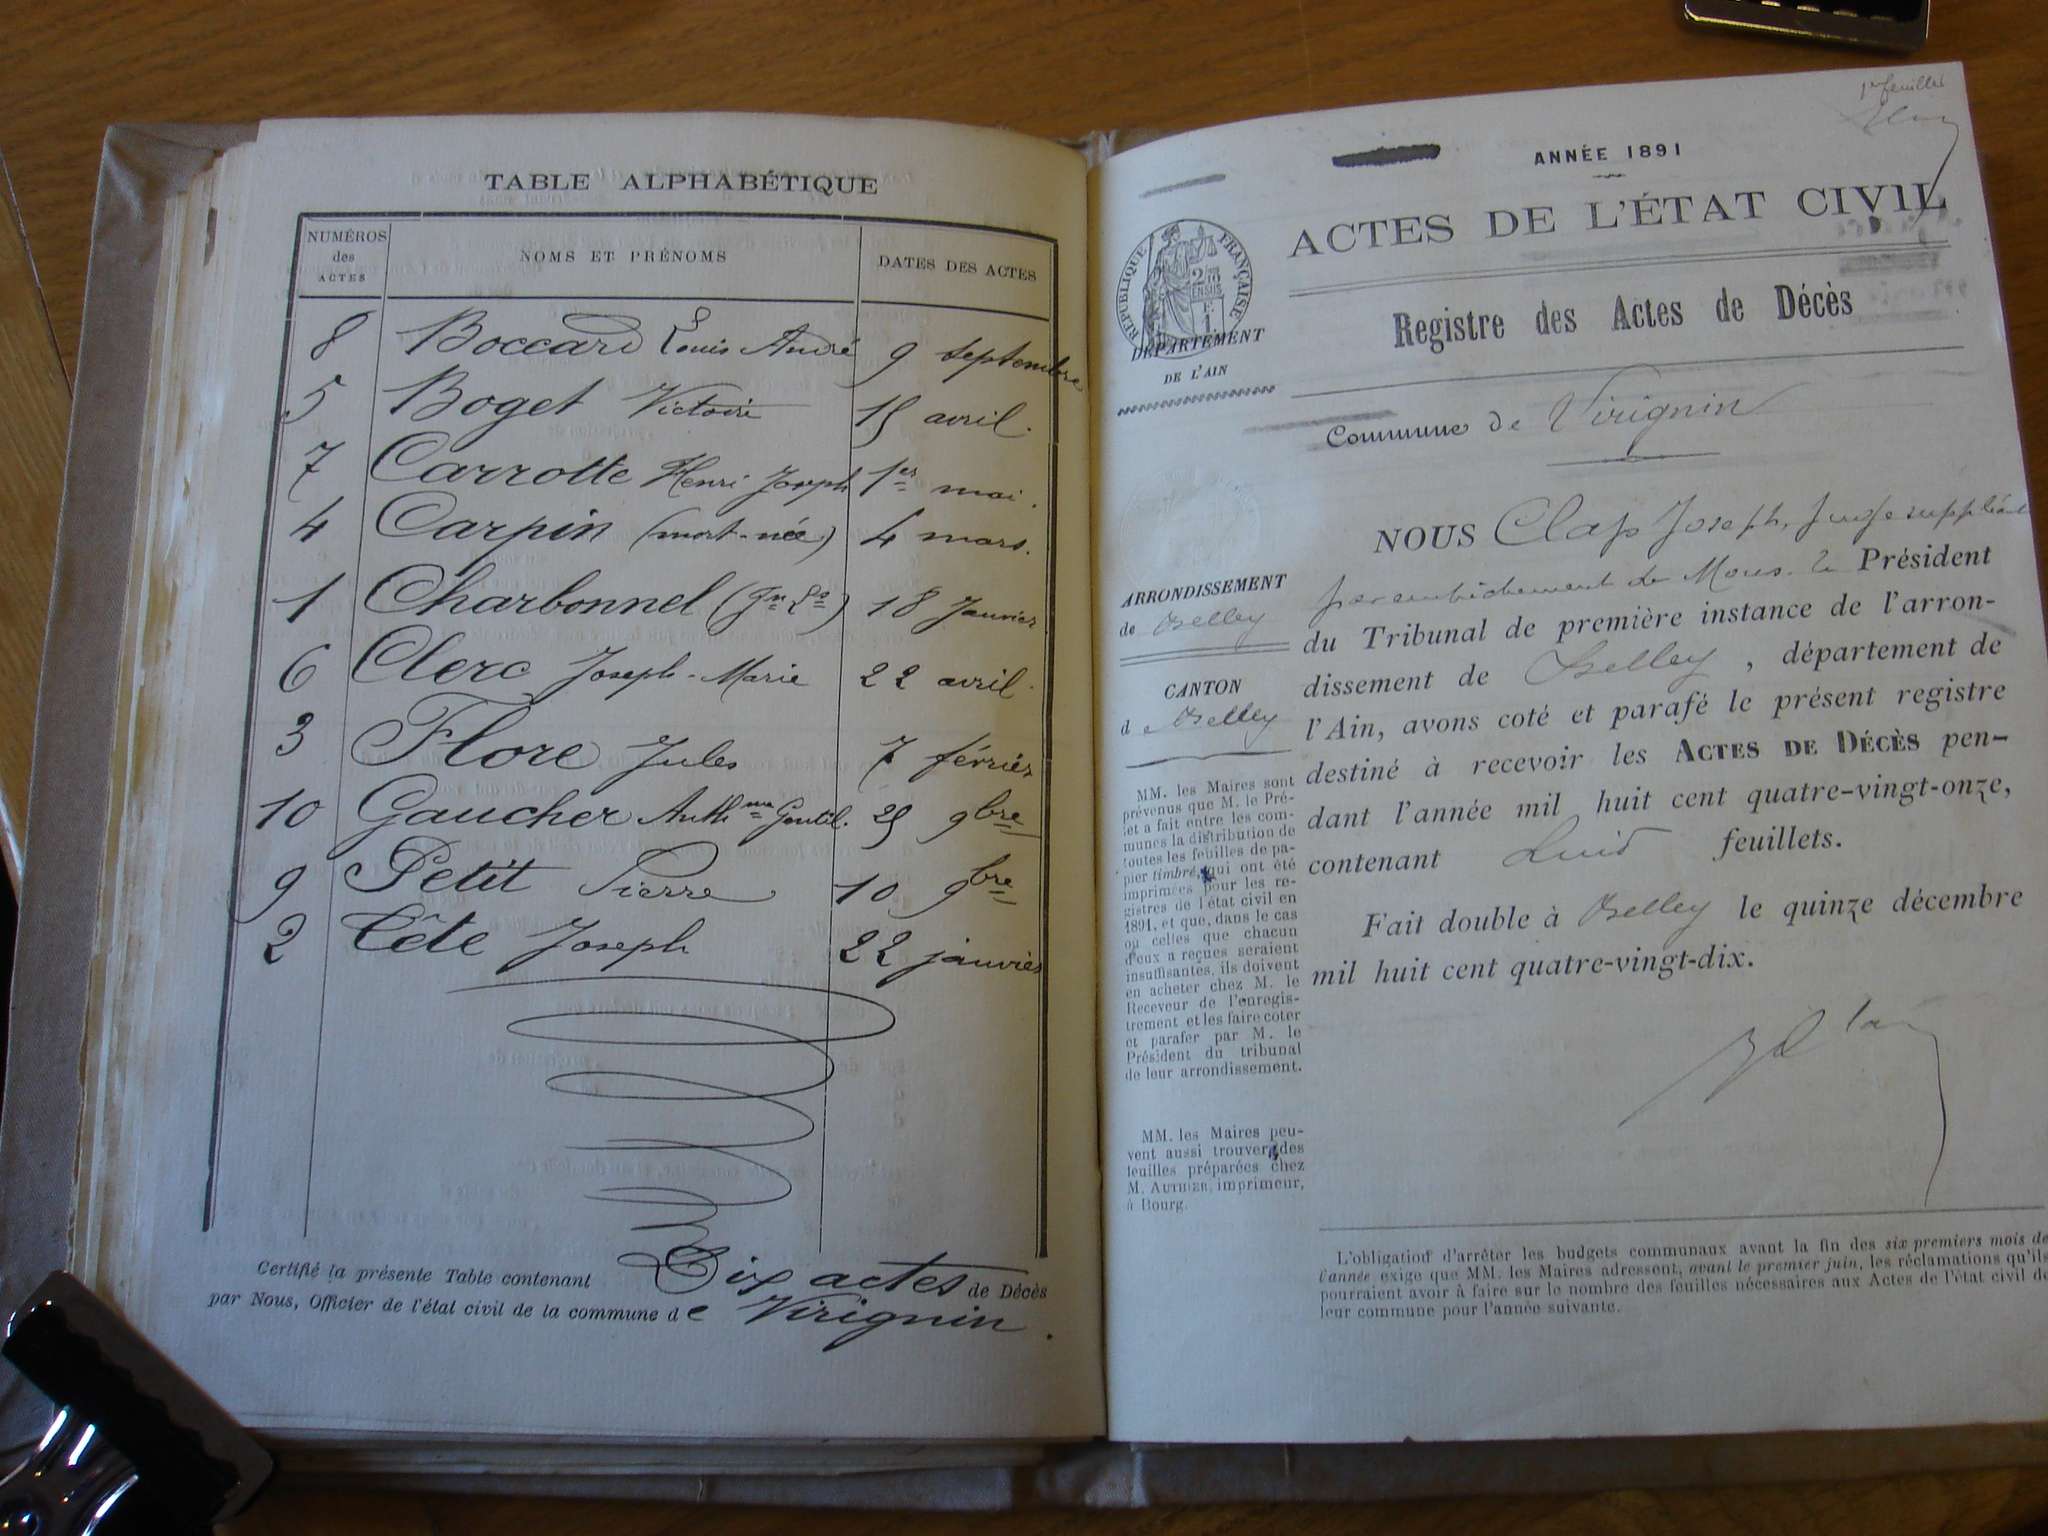 TABLE ALPHABÉTIQUE
NUMÉROS des ACTES
NOMS ET PRÉNOMS
DATES DES ACTES
8 Boccard Louis André 9 septembre
5 Boget Victoire 15 avril.
7 Carrotte Henri Joseph 1er mai.
4 Carpin (mort-née) 4 mars.
1 Charbonnel (Jn Ls) 18 Janvier
6 Clerc Joseph-Marie 22 avril.
3 Flore Jules 7 février
10 Gaucher Anthme Gentil. 25 9bre
9 Petit Pierre 10 9bre
2 Tête Joseph 22 janvier
Certifié la présente Table contenant Dix actes de Décès
par Nous, Officier de l'état civil de la commune de Virignin.
1er feuillet
ANNÉE 1891
ACTES DE L'ÉTAT CIVIL
RÉPUBLIQUE FRANÇAISE
DÉPARTEMENT
DE L'AIN
Registre des Actes de Décès
Commune de Virignin
ARRONDISSEMENT
de Belley
CANTON
de Belley
MM. les Maires sont
prévenus que M. le Pré-
fet a fait entre les com-
munes la distribution de
toutes les feuilles de pa-
pier timbré, qui ont été
imprimées pour les re-
gistres de l'état civil en
1891, et que, dans le cas
où celles que chacun
d'eux a reçues seraient
insuffisantes, ils doivent
en acheter chez M. le
Receveur de l'enregis-
trement et les faire coter
et parafer par M. le
Président du tribunal
de leur arrondissement.
MM. les Maires peu-
vent aussi trouver des
feuilles préparées chez
M. AUTHIER, imprimeur,
à Bourg.
NOUS Clap Joseph, Juge suppléant
par empêchement de Mons. le Président
du Tribunal de première instance de l'arron-
dissement de Belley, département de
l'Ain, avons coté et parafé le présent registre
destiné à recevoir les ACTES DE DÉCÈS pen-
dant l'année mil huit cent quatre-vingt-onze,
contenant feuillets.
Fait double à Belley le quinze décembre
mil huit cent quatre-vingt-dix.
L'obligation d'arrêter les budgets communaux avant la fin des six premiers mois de
l'année exige que MM. les Maires adressent, avant le premier juin, les réclamations qu'ils
pourraient avoir à faire sur le nombre des feuilles nécessaires aux Actes de l'état civil de
leur commune pour l'année suivante.